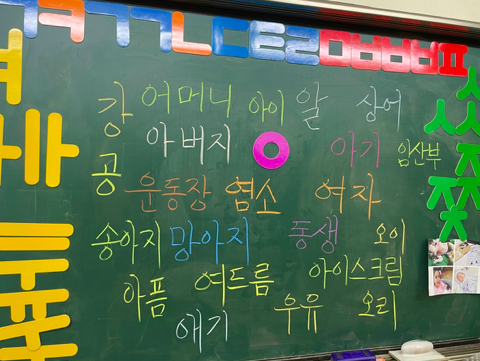 ㅋ ㄱ ㄲ ㄴ ㄷ ㅌ ㄹ ㅁ ㅂ ㅃ ㅍ
강 어머니 아이 알 상어
아버지 ㅇ 아기 임산부
공 운동장 염소 여자
송아지 망아지 동생 오이
아픔 여드름 아이스크림
애기 우유 오리
ㅅ
ㅆ
ㅈ
ㅉ